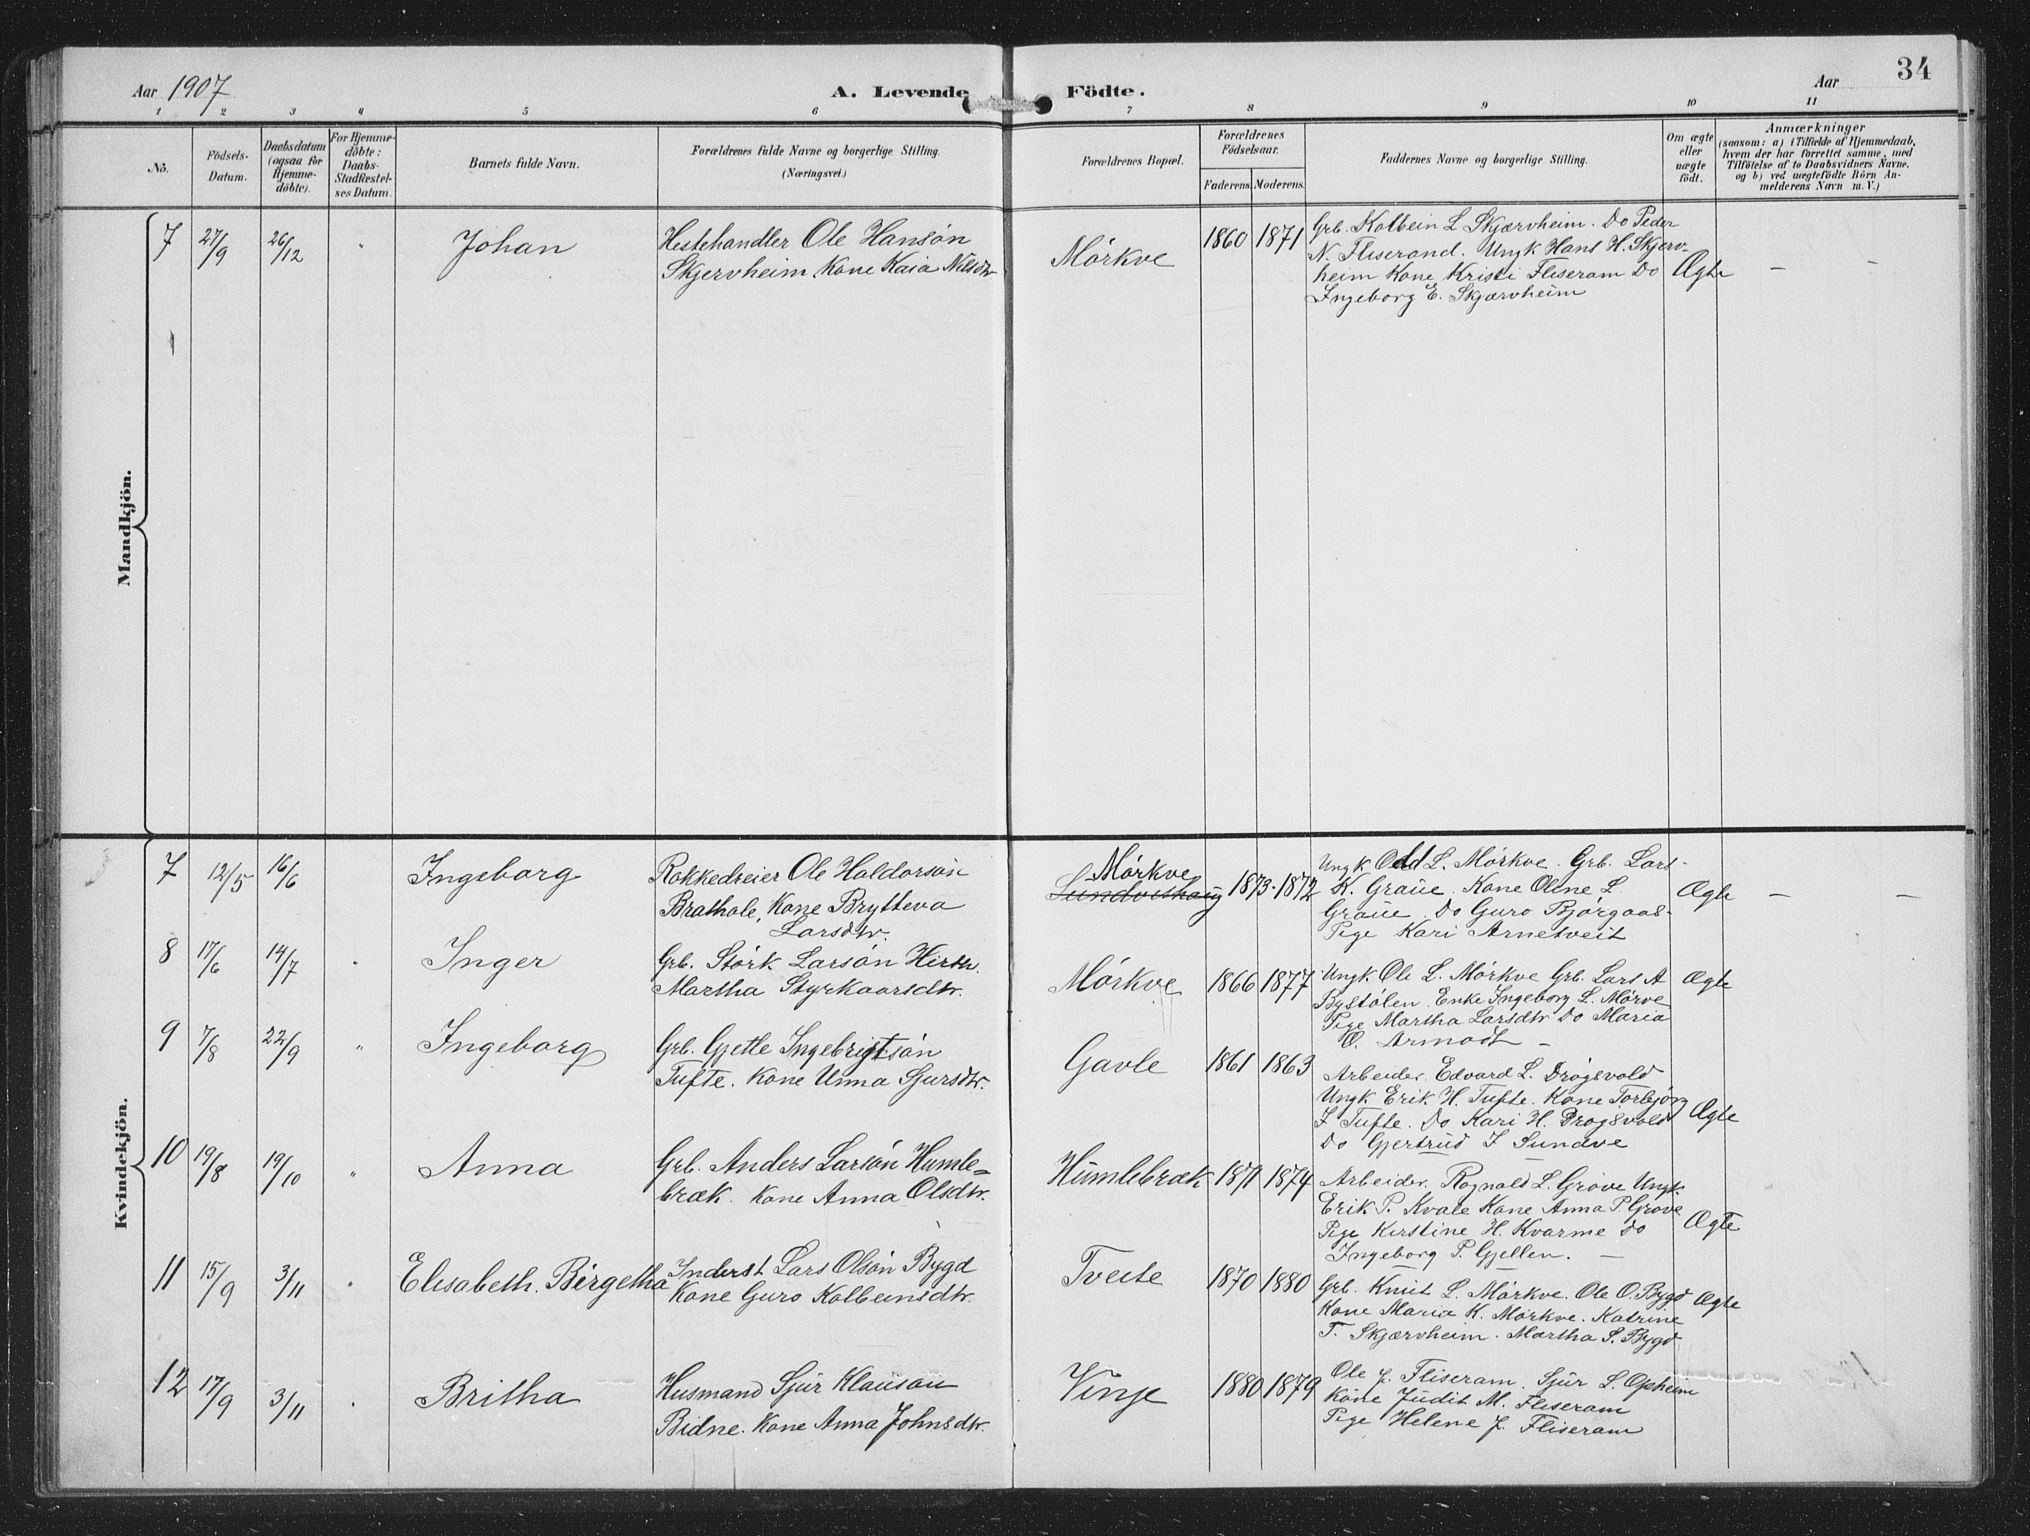 34
Aar 1907
A. Levende
Födte.
Aar
1 2 3 4 5 6 7 8 9 10 11
No.
Födsels-
Datum.
Daabsdatum
(ogsaa for
Hjemme-
döbte).
For Hjemme-
döbte:
Daabs-
Stadfæstel-
ses Datum.
Barnets fulde Navn.
Forældrenes fulde Navne og borgerlige Stilling.
(Næringsvei.)
Forældrenes Bopæl.
Forældrenes
Fødselsaar.
Faderens. Moderens.
Faddernes Navne og borgerlige Stilling.
Om ægte
eller
uægte
födt.
Anmærkninger
(saasom: a) i Tilfælde af Hjemmedaab,
hvem der har forrettet samme, med
Tilföielse af to Daabsvidners Navne.
og b) ved uægtefödte Börn An-
melderens Navn m. V.)
Mandkjön.
7 27/9 26/12 " Johan
Hestehandler Ole Hansøn
Skjervheim Kone Kaia Nilsdtr
Mørkve
1860 1871
Grb. Kolbein L Skjærvheim. Do Peder
N. Fliserand. Ungk Hans H. Skjerv-
heim Kone Kristi Fliseram Do
Ingeborg E. Skjærvheim
Ægte — —
Kvindekjön.
7 12/5 16/6 Ingeborg
Rokkedreier Ole Haldorsøn
Brathole, Kone Brytteva
Larsdtr.
Mørkve
Lundveshaug
1873 1872
Ungk Odd L. Mørkve. Grb. Lars
K. Graue. Kone Oline L.
Graue. Do Guro Bjørgaas-
Pige Kari Arnetveit
Ægte — —
8 17/6 14/7 " Inger
Grb. Størk Larsøn Hirth.
Martha Styrkaarsdtr.
Mørkve
1866 1877
Ungk Ole L. Mørkve Grb. Lars A
Bystølen. Enke Ingeborg L. Mørve
Pige Martha Larsdtr Do Maria
O. Armodt —
Ægte
9 7/8 22/9 " Ingeborg
Grb. Gjetle Ingebrigtsøn
Tufte. Kone Unna Sjursdtr.
Gavle
1861 1863
Arbeider. Edvard L. Drøgsvold
Ungk Erik H. Tufte. Kone Torbjørg
I Tufte. Do Kari H. Drøgsvold
Do Gjertrud I Sundve
Ægte
10 19/8 19/10 " Anna
Grb. Anders Larsøn Humle-
bræk. Kone Anna Olsdtr.
Humlebræk
1871 1874
Arbeider. Rognald L. Grøve Ungk.
Erik P. Kvale Kone Anna P Grøve
Pige Kirstine H. Kvarme Do
Ingeborg P. Gjellen. —
Ægte
11 15/9 3/11 " Elisabeth. Birgetha
Inderst Lars Olsøn Bygd
Kone Guro Kolbeinsdtr.
Tveite
1870 1880
Grb. Knut L. Mørkve. Ole O. Bygd
Kone Maria K. Mørkve. Katrine
T. Skjærvheim. Martha S. Bygd
Ægte
12 17/9 3/11 " Britha
Husmand Sjur Klausøn
Bidne. Kone Anna Johnsdtr.
Vinje
1880 1879
Ole J. Fliseram. Sjur L. Opheim
Kone Judit M. Fliseram
Pige Helene J. Fliseram